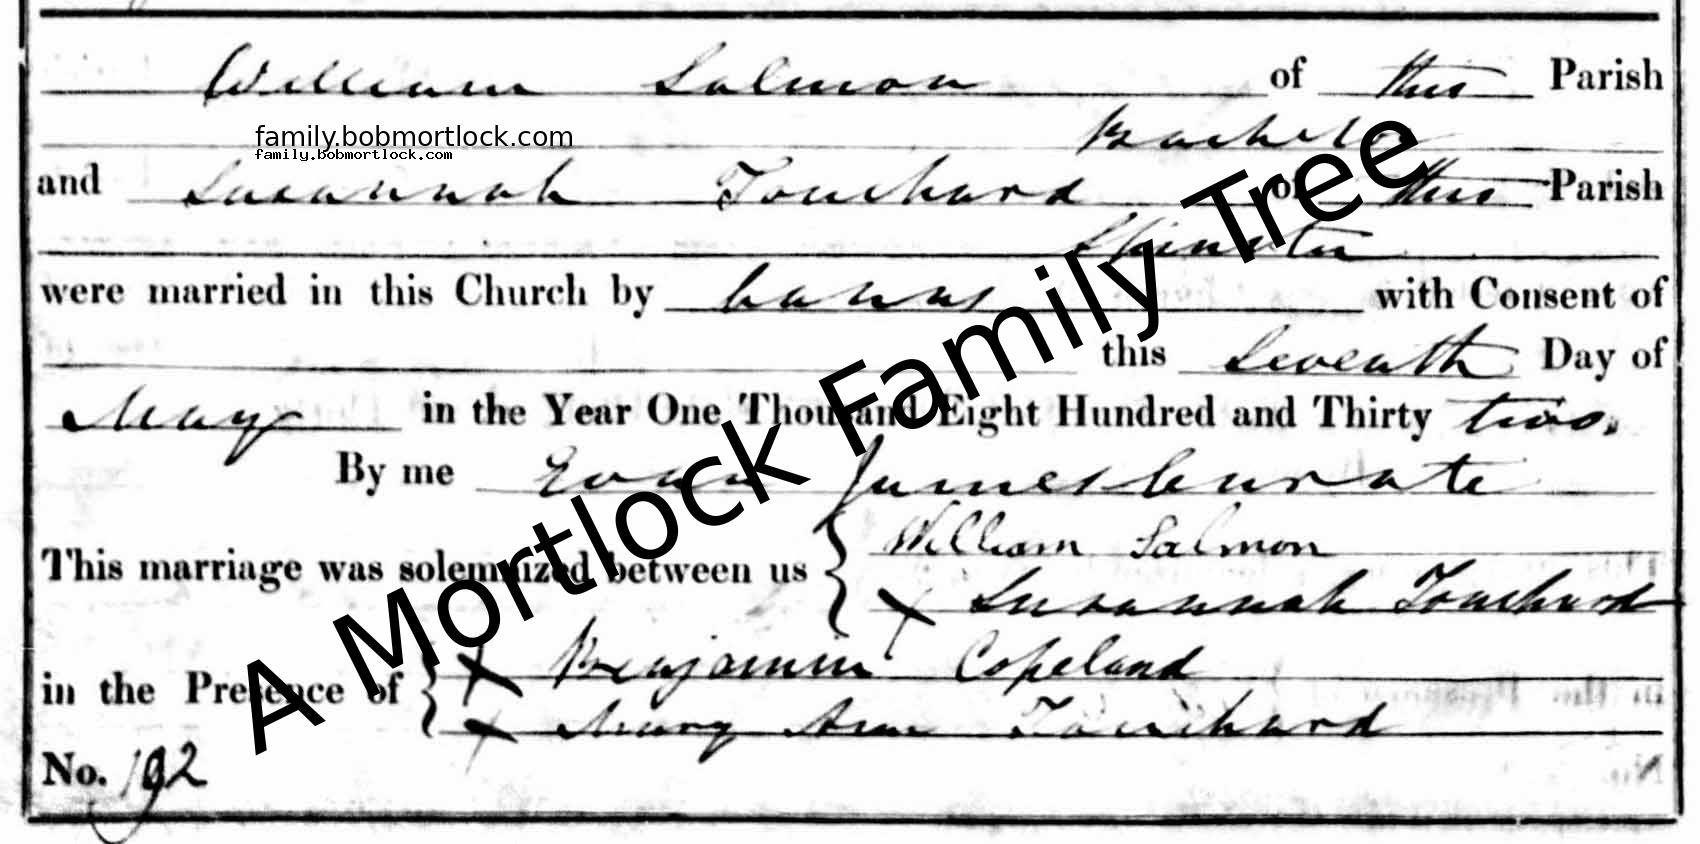 William Salmon of this Parish
Bachelor
family.bobmortlock.com
family.bobmortlock.com
and Susannah Touchard of this Parish
Spinster
were married in this Church by banns with Consent of
this Seventh Day of
May in the Year One Thousand Eight Hundred and Thirty two.
By me Evan James Curate
This marriage was solemnized between us { William Salmon
X Susannah Touchard
in the Presence of { X Benjamin Copeland
X Mary Ann Touchard
No. 192
A Mortlock Family Tree